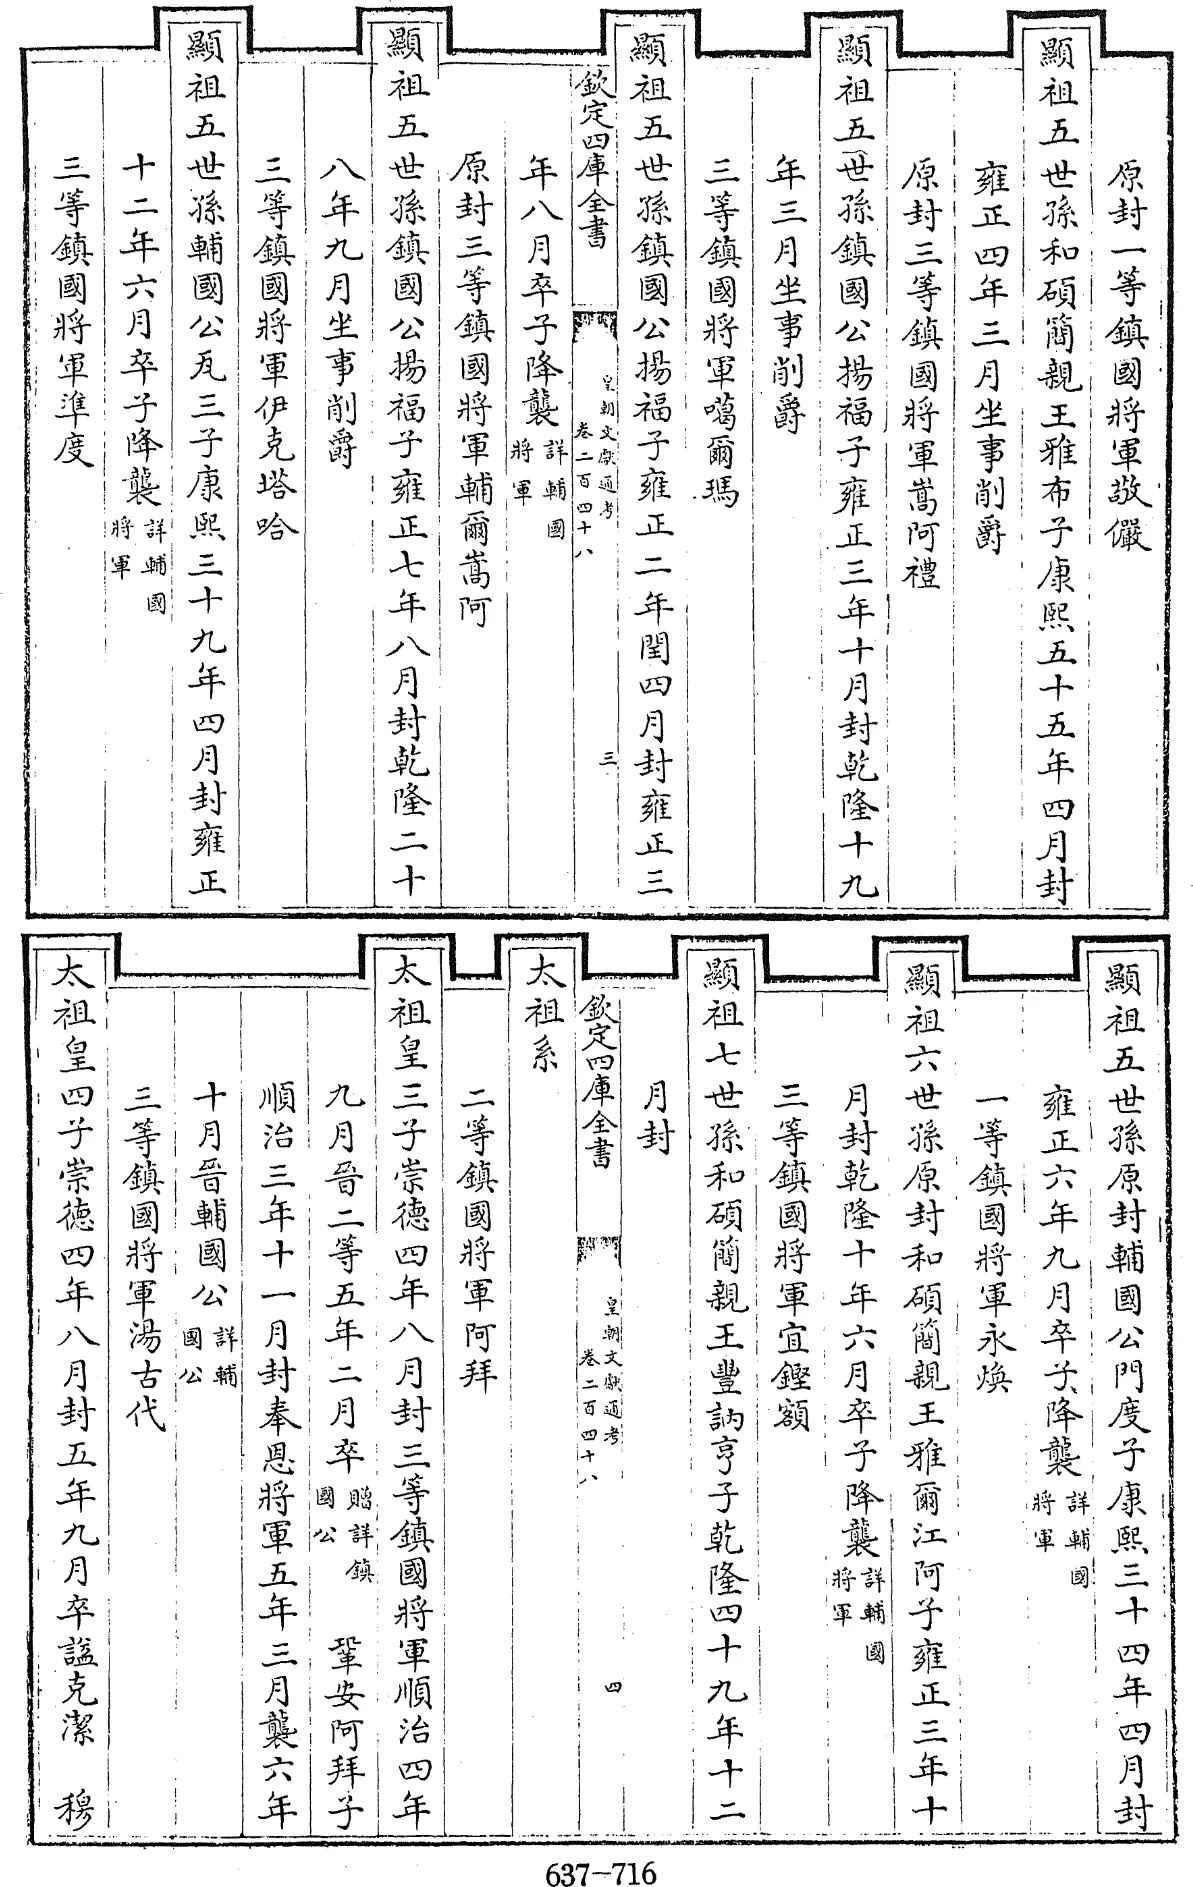 原封一等鎮國將軍敬儼
顯祖五世孫和碩簡親王雅布子康熙五十五年四月封
雍正四年三月坐事削爵
原封三等鎮國將軍嵩阿禮
顯祖五世孫鎮國公揚福子雍正三年十月封乾隆十九
年三月坐事削爵
三等鎮國將軍噶爾瑪
顯祖五世孫鎮國公揚福子雍正二年閏四月封雍正三
欽定四庫全書
皇朝文獻通考
卷二百四十八
三
年八月卒子降襲詳輔國
將軍
原封三等鎮國將軍輔爾嵩阿
顯祖五世孫鎮國公揚福子雍正七年八月封乾隆二十
八年九月坐事削爵
三等鎮國將軍伊克塔哈
顯祖五世孫輔國公瓦三子康熙三十九年四月封雍正
十二年六月卒子降襲詳輔國
將軍
三等鎮國將軍準度
顯祖五世孫原封輔國公門度子康熙三十四年四月封
雍正六年九月卒子降襲詳輔國
將軍
一等鎮國將軍永煥
顯祖六世孫原封和碩簡親王雅爾江阿子雍正三年十
月封乾隆十年六月卒子降襲詳輔國
將軍
三等鎮國將軍宜鏗額
顯祖七世孫和碩簡親王豐訥亨子乾隆四十九年十二
月封
欽定四庫全書
皇朝文獻通考
卷二百四十八
四
太祖系
二等鎮國將軍阿拜
太祖皇三子崇德四年八月封三等鎮國將軍順治四年
九月晉二等五年二月卒贈詳鎮
國公
鞏安阿拜子
順治三年十一月封奉恩將軍五年三月襲六年
十月晉輔國公詳輔
國公
三等鎮國將軍湯古代
太祖皇四子崇德四年八月封五年九月卒謚克潔 穆
637-716